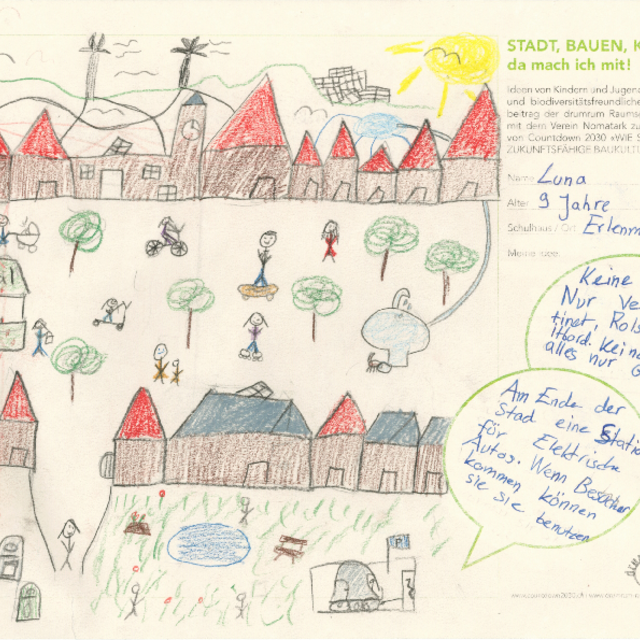 STADT, BAUEN, K
da mach ich mit!
Ideen von Kindern und Jugena
und biodiversitätsfreundliche
beitrag der drumrum Raumsc
mit dem Verein Nomatark zu
von Countdown 2030 «WIE S
ZUKUNFTSFÄHIGE BAUKULT
Name Luna
Alter 9 Jahre
Schulhaus / Ort Erlenm
Meine Idee:
Keine
Nur Ve
tinet, Rol
ltbord. Keine
alles nur G
Am Ende der
Stad eine Statio
für Elektrische
Autos. Wenn Besucher
kommen können
sie sie benutzen
P